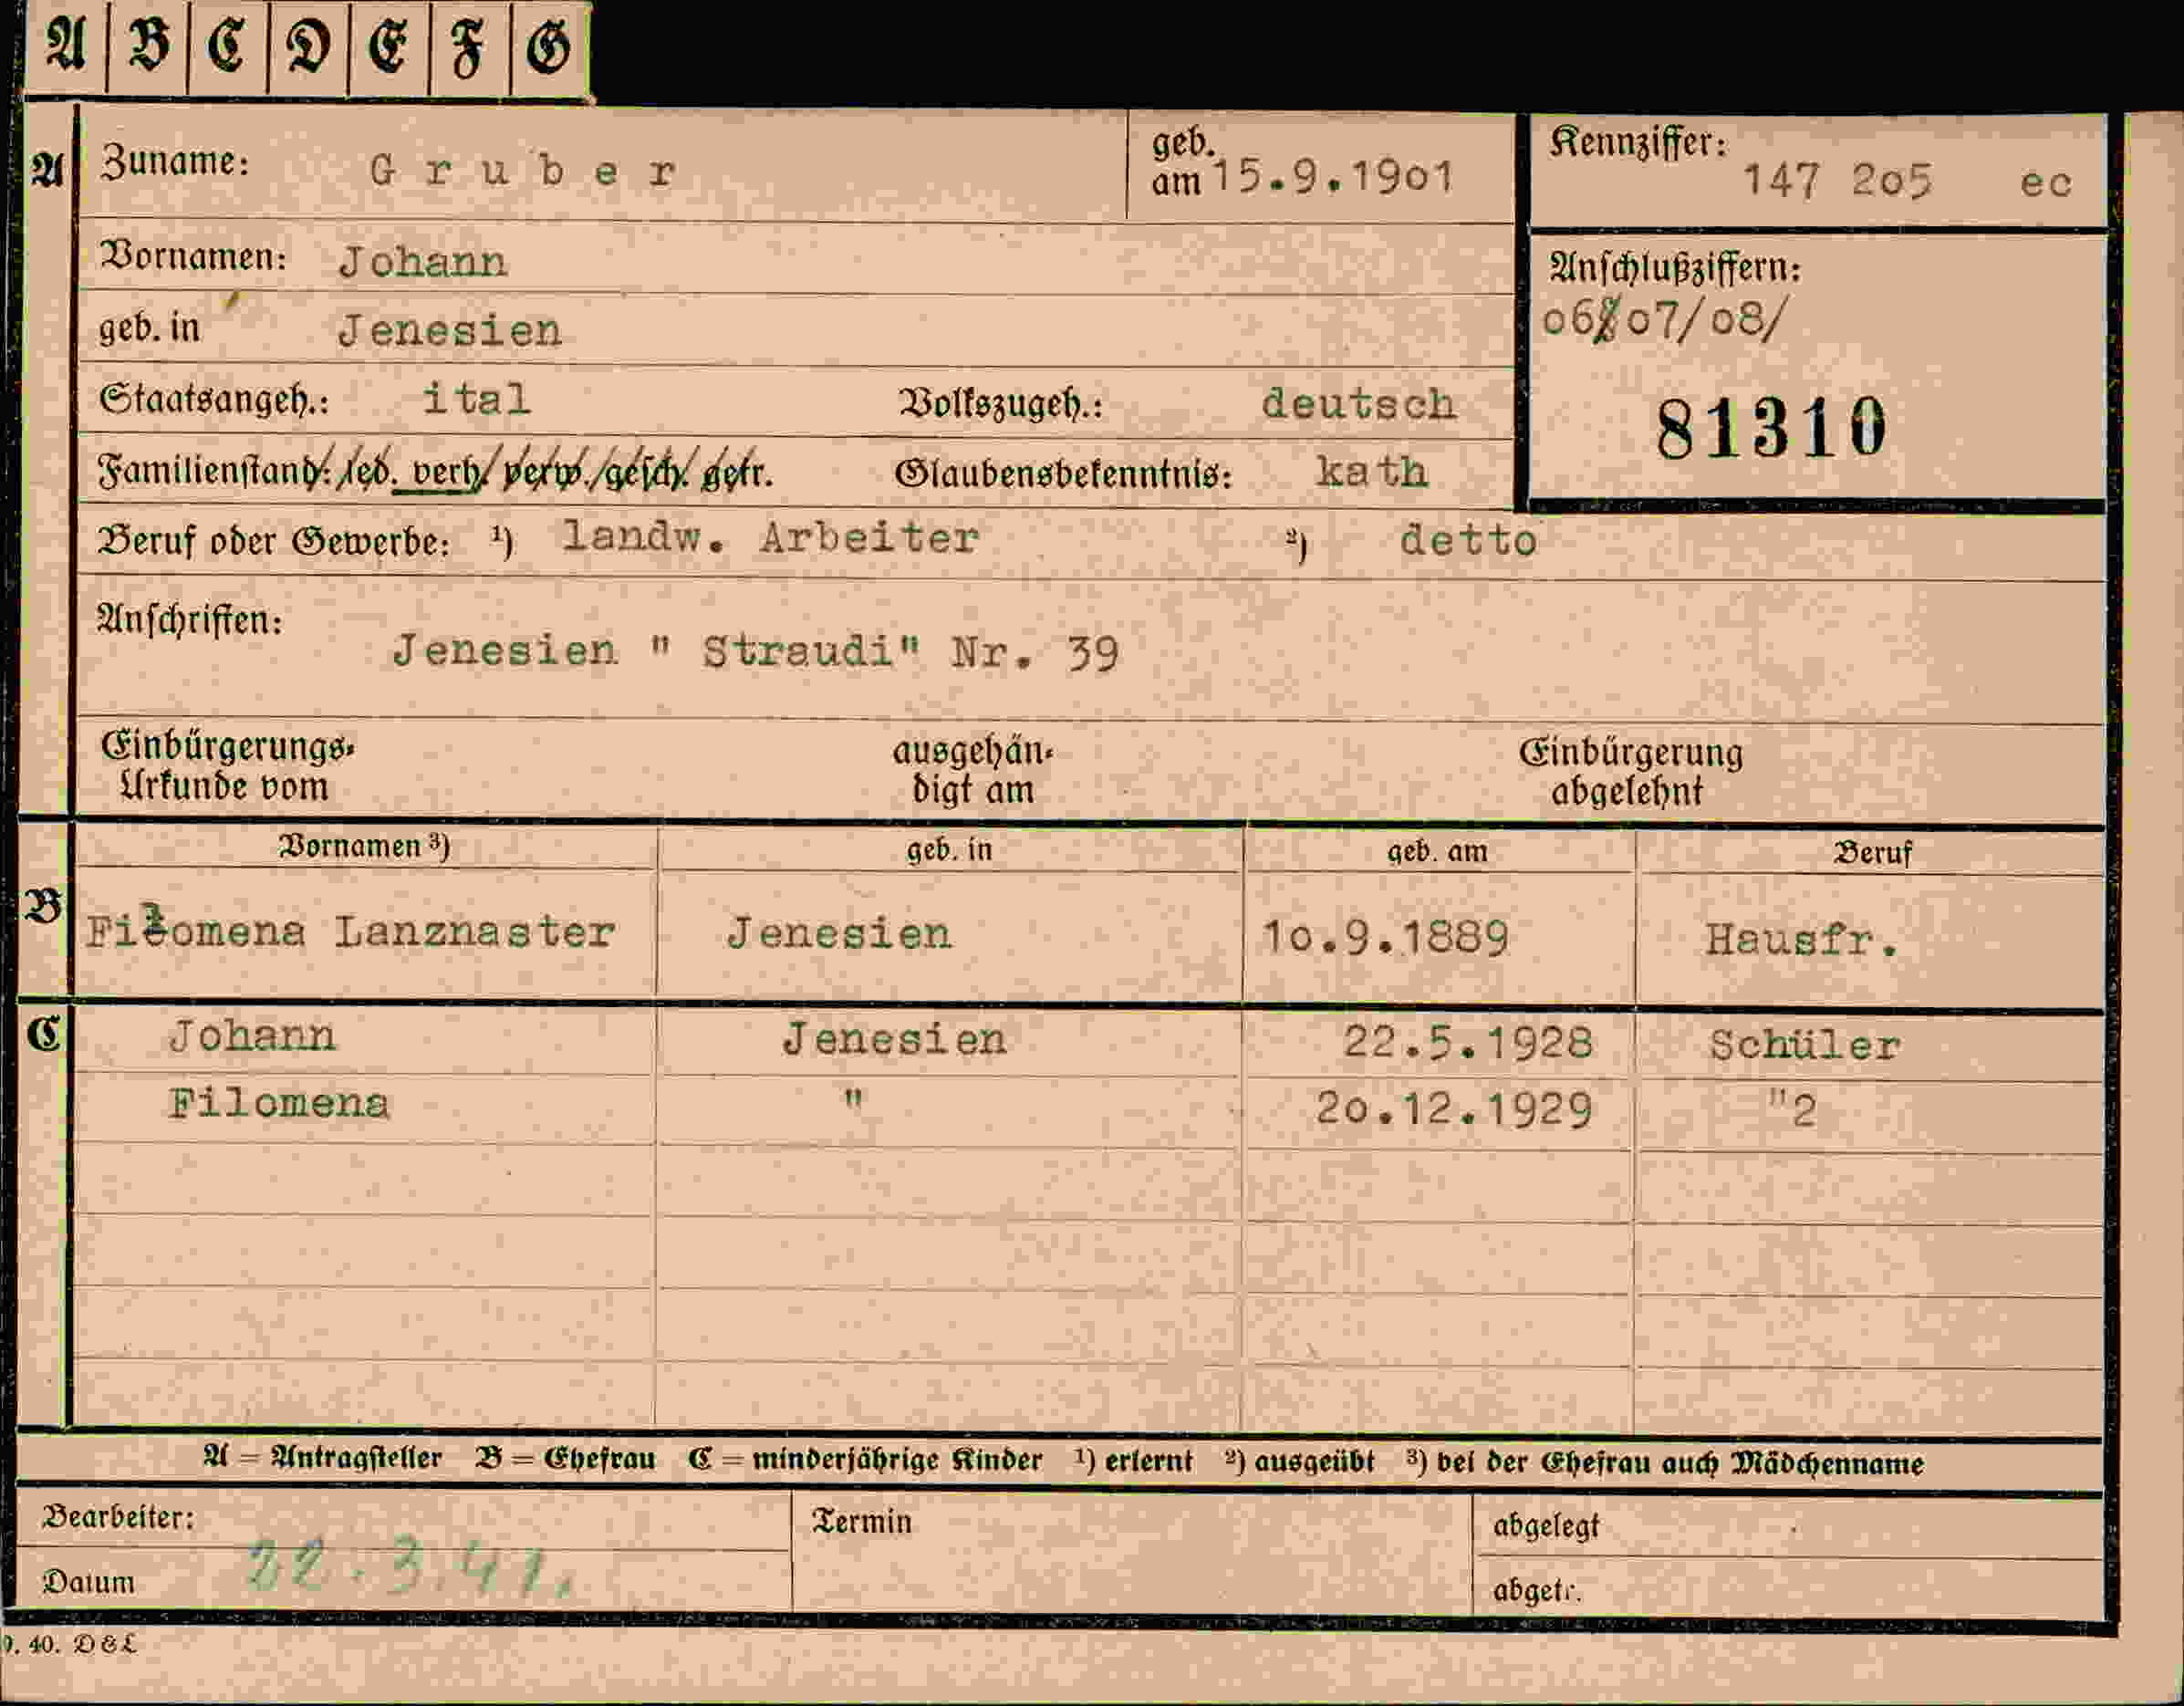 A B C D E F G
A Zuname: Gruber geb. am 15.9.1901 Kennziffer: 147 205 ec
Vornamen: Johann
Anschlußziffern:
geb. in Jenesien
06/07/08/
Staatsangeh.: ital Volkszugeh.: deutsch
81310
Familienstand: led. verh. verw. gesch. getr. Glaubensbekenntnis: kath
Beruf oder Gewerbe: 1) landw. Arbeiter 2) detto
Anschriften:
Jenesien " Straudi" Nr. 39
Einbürgerungs- Urkunde vom ausgehän- digt am Einbürgerung abgelehnt
Vornamen 3) geb. in geb. am Beruf
B Filomena Lanznaster Jenesien 10.9.1889 Hausfr.
C Johann Jenesien 22.5.1928 Schüler
Filomena " 20.12.1929 "2
A = Antragsteller B = Ehefrau C = minderjährige Kinder 1) erlernt 2) ausgeübt 3) bei der Ehefrau auch Mädchenname
Bearbeiter: Termin abgelegt
Datum 22.3.41. abgetr.
9. 40. D & L